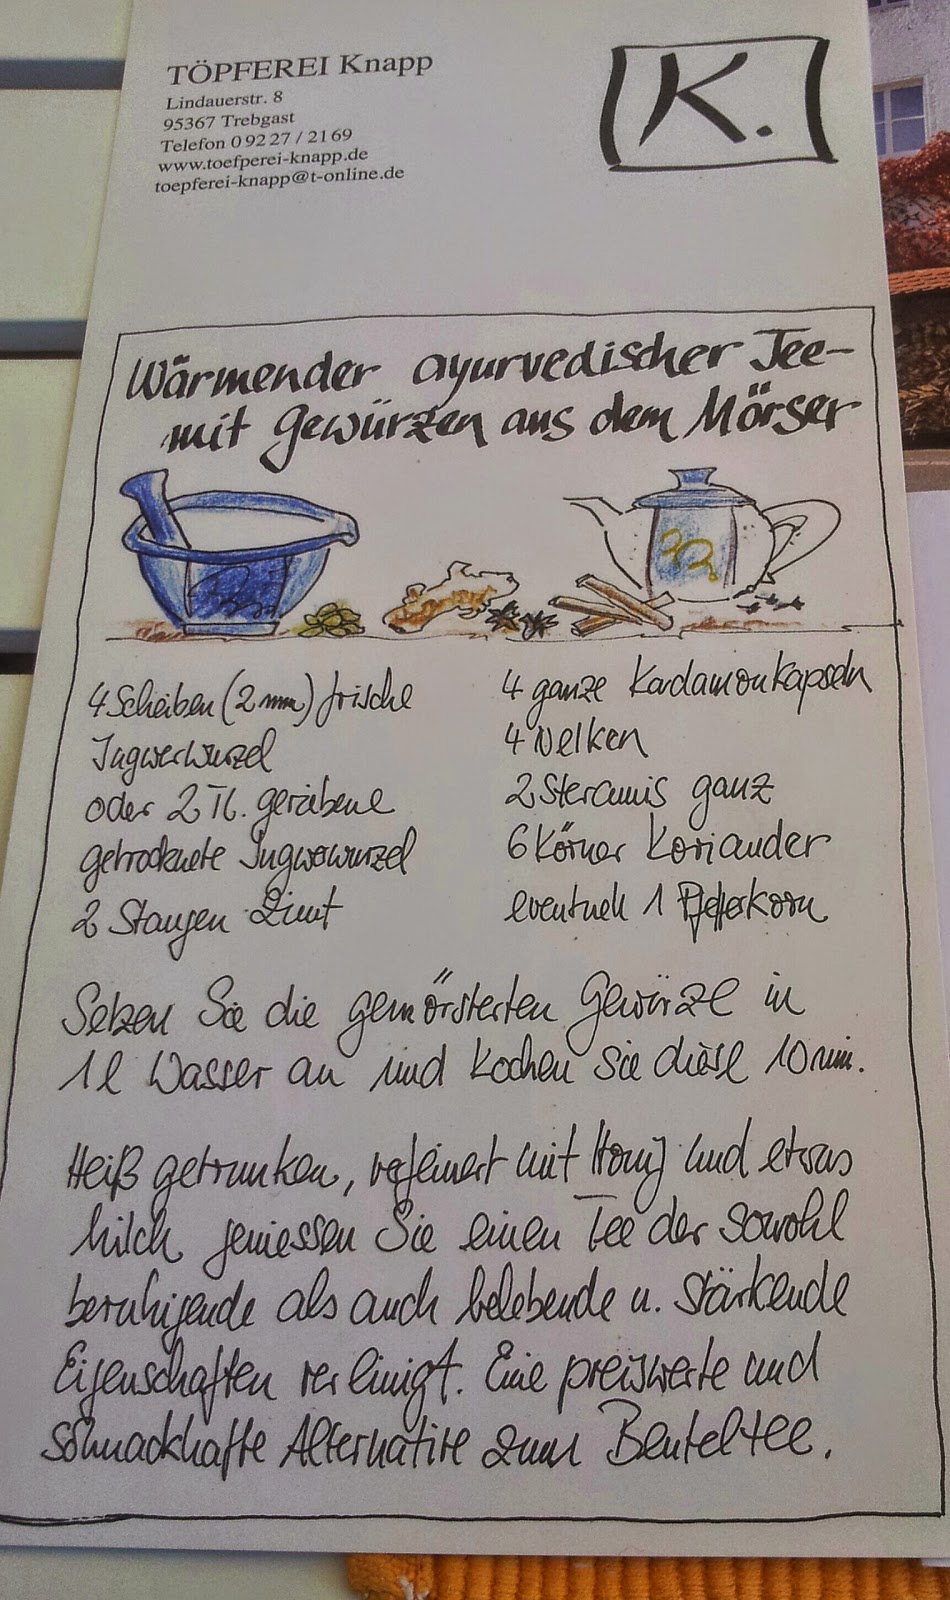 TÖPFEREI Knapp
Lindauerstr. 8
95367 Trebgast
Telefon 0 92 27 / 21 69
www.toefperei-knapp.de
toepferei-knapp@t-online.de
K.
Wärmender ayurvedischer Tee-
mit Gewürzen aus dem Mörser
4 Scheiben (2 mm) frische
Ingwerwurzel
oder 2 Tl. geriebene
getrocknete Ingwerwurzel
2 Stangen Zimt
4 ganze Kardamonkapseln
4 Nelken
2 Sternanis ganz
6 Körner Koriander
eventuell 1 Pfefferkorn
Setzen Sie die gemörsterten Gewürze in
1 l Wasser an und kochen Sie diese 10 min.
Heiß getrunken, verfeinert mit Honig und etwas
Milch geniessen Sie einen Tee der sowohl
beruhigende als auch belebende u. stärkende
Eigenschaften vereinigt. Eine preiswerte und
schmackhafte Alternative zum Beuteltee.